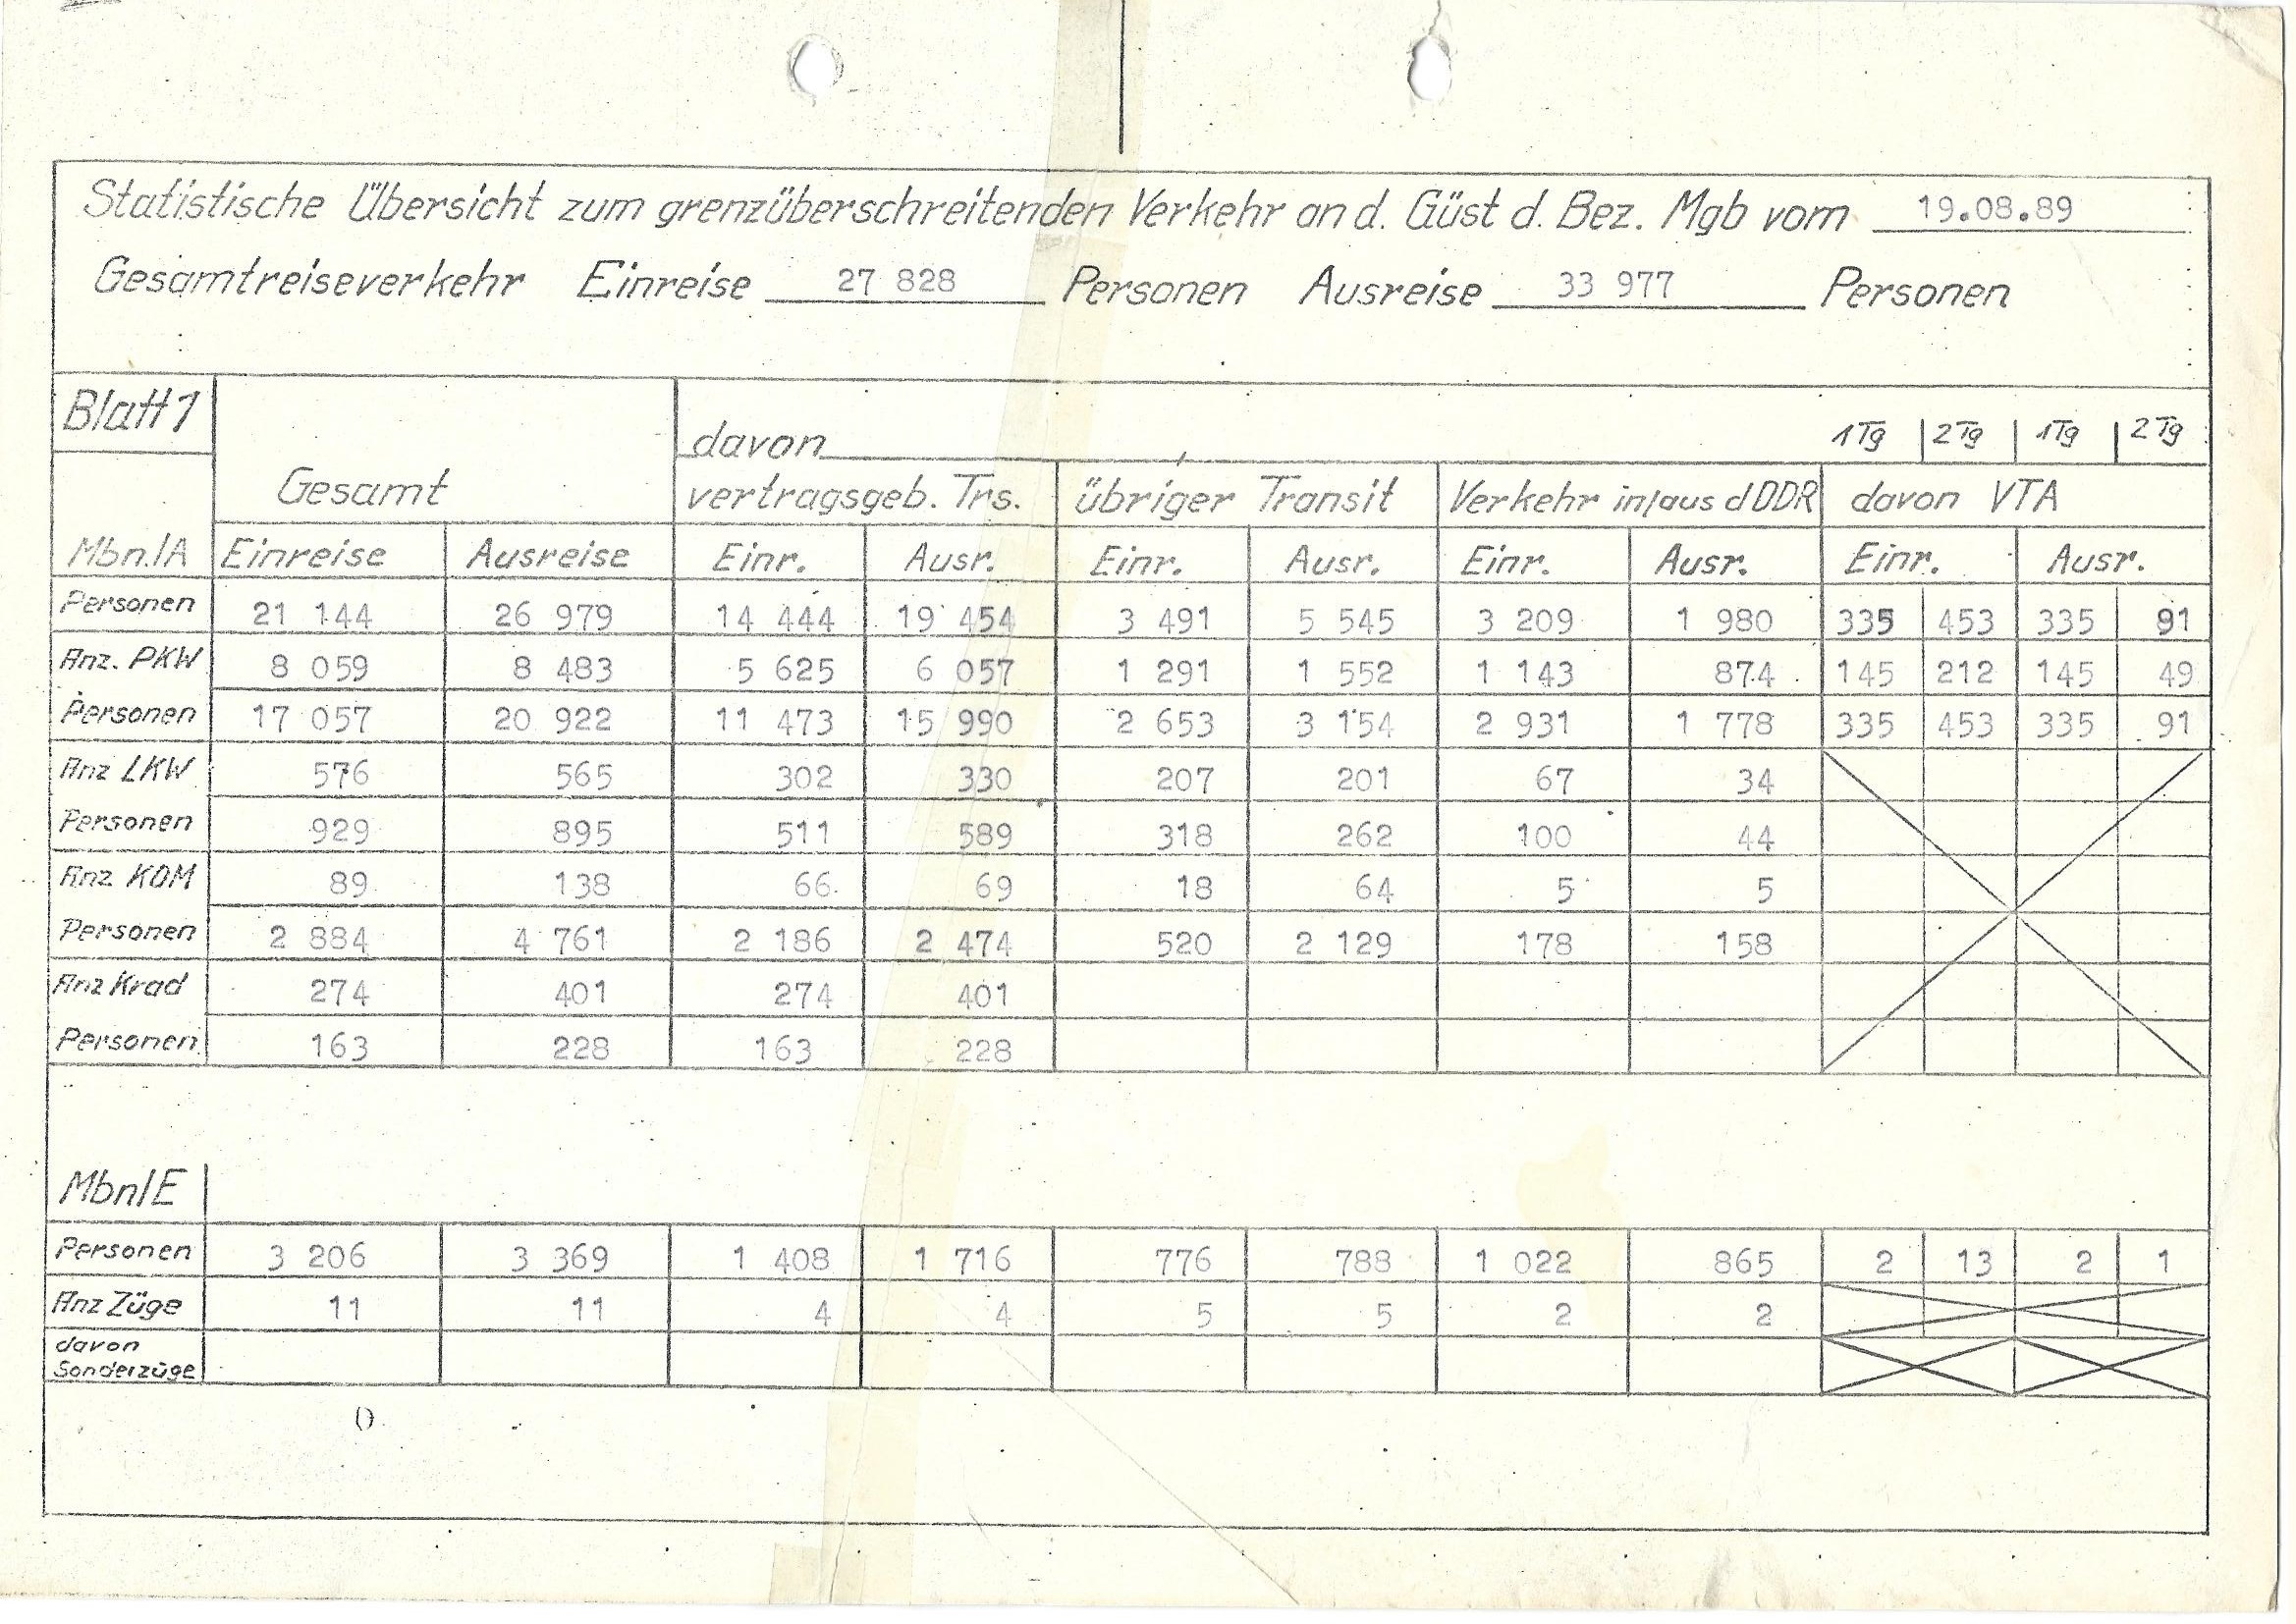 Statistische Übersicht zum grenzüberschreitenden Verkehr an d. Güst d. Bez. Mgb vom 19.08.89
Gesamtreiseverkehr Einreise 27 828 Personen Ausreise 33 977 Personen
Blatt 1 davon 1Tg 2Tg 1Tg 2Tg
Gesamt vertragsgeb. Trs. übriger Transit Verkehr in/aus d DDR davon VTA
Mbn./A Einreise Ausreise Einr. Ausr. Einr. Ausr. Einr. Ausr. Einr. Ausr.
Personen 21 144 26 979 14 444 19 454 3 491 5 545 3 209 1 980 335 453 335 91
Anz. PKW 8 059 8 483 5 625 6 057 1 291 1 552 1 143 874 145 212 145 49
Personen 17 057 20 922 11 473 15 990 2 653 3 154 2 931 1 778 335 453 335 91
Anz LKW 576 565 302 330 207 201 67 34
Personen 929 895 511 589 318 262 100 44
Anz KOM 89 138 66 69 18 64 5 5
Personen 2 884 4 761 2 186 2 474 520 2 129 178 158
Anz Krad 274 401 274 401
Personen 163 228 163 228
Mbn/E
Personen 3 206 3 369 1 408 1 716 776 788 1 022 865 2 13 2 1
Anz Züge 11 11 4 4 5 5 2 2
davon
Sonderzüge